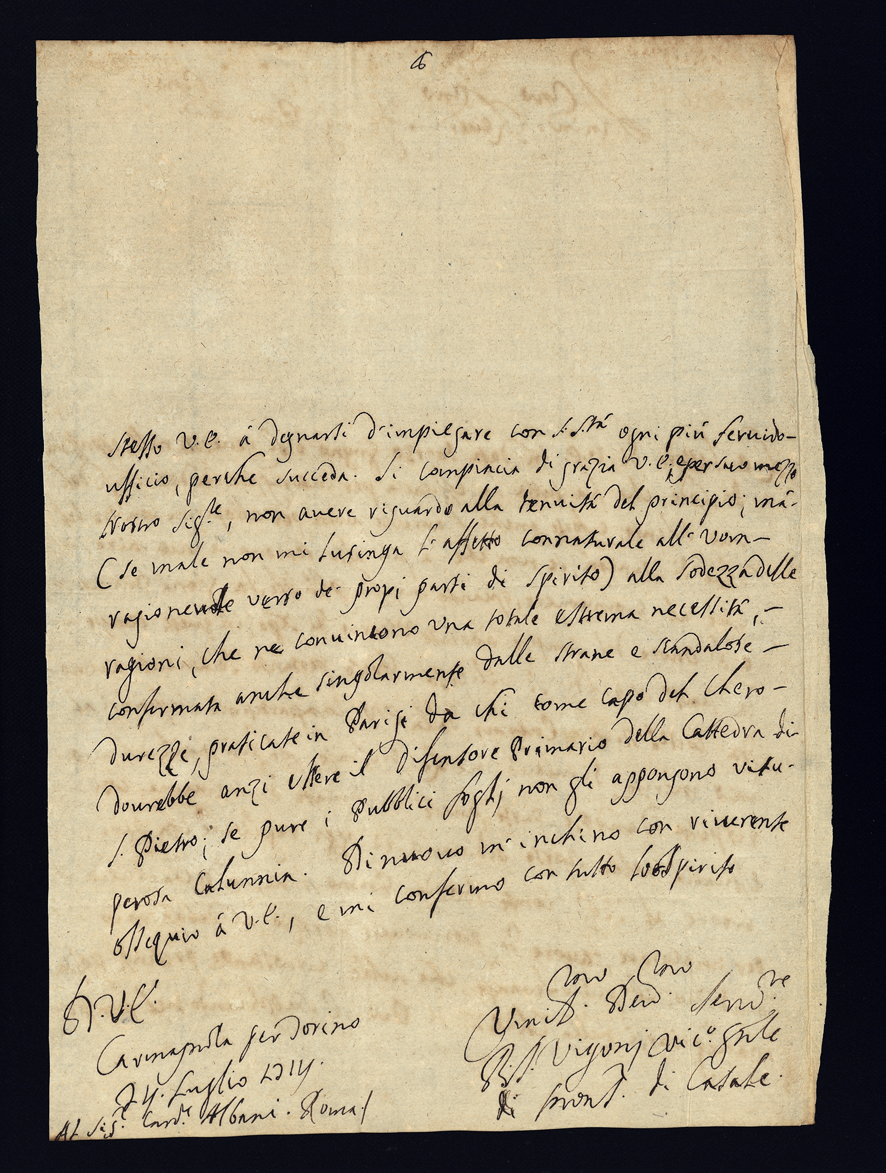 stesso V.E. á degnarsi d'impiegare con S. Stà ogni più feruido-
ufficio, perche succeda. Si compiacia di grazia V.E., e per suo mezzo
nostro Sig.re, non auere riguardo alla tenuità del principio; mà-
(se male non mi lusinga l'affetto connaturale all'uom-
ragioneuole verso de' propi parti di spirito) alla sodezza delle
ragioni, che ne conuincono una totale estrema necessità, -
confirmata anche singolarmente dalle strane e scandalose -
durezze, praticate in Parigi da chi come capo del Chero -
dourebbe anzi essere il difensore Primario della Cattedra di
S. Pietro; se pure i Pubblici foglj non gli appongono vitu-
perosa Calunnia. Di nuouo m'inchino con riuerente
ossequio á V.E., e mi confermo con tutto lo spirito
D. V.E.
Carmagnola per Torino
24. Luglio 1714.
Al Sig.r Card.e Albani. Roma/
Vmil.mo Deu.mo Seru.re
Vigonj Vic.o gnle
di Monf. di Casale.